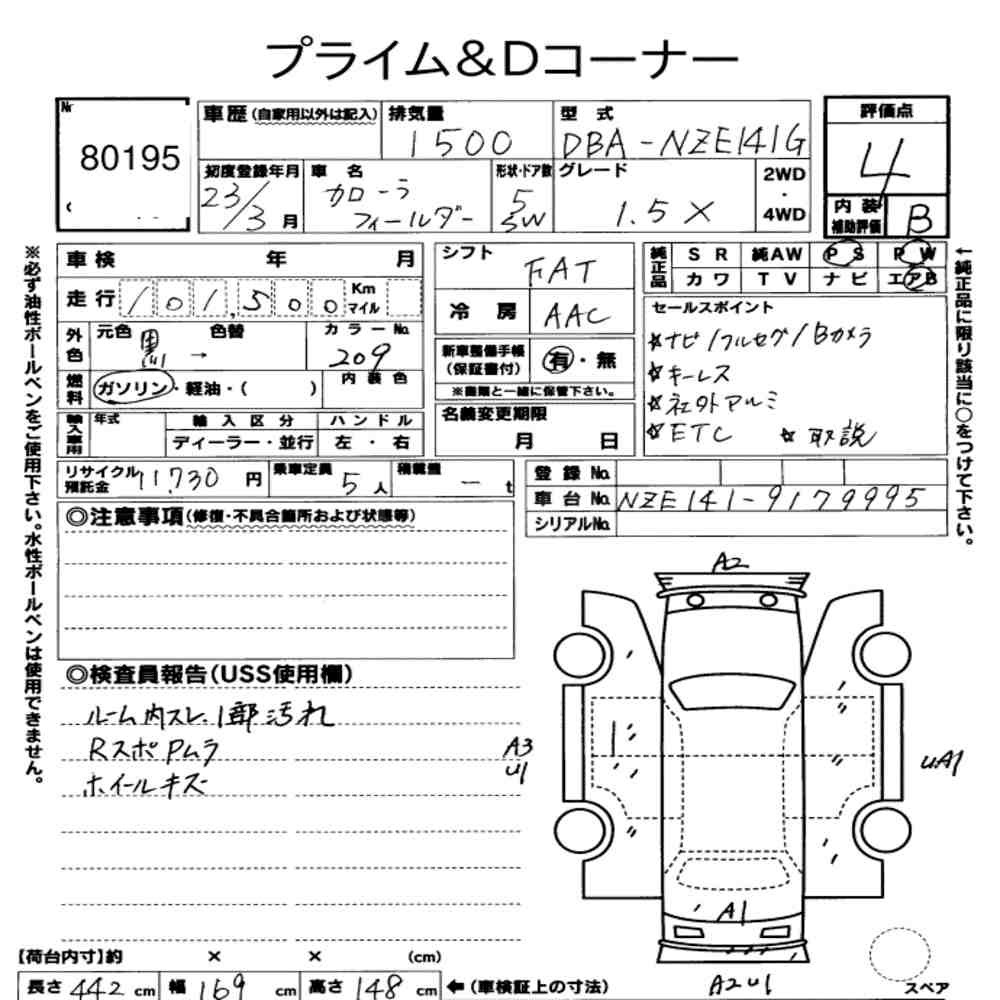 プライム&Dコーナー
Nr
80195
車歴(自家用以外は記入)
排気量
1500
型式
DBA-NZE141G
評価点
4
初度登録年月
23/3月
車名
カローラ
フィールダー
形状・ドア数
5
SW
グレード
1.5X
2WD
・
4WD
内装
補助評価
B
車検 年 月
シフト
FAT
純正品
SR 純AW PS PW
カワ TV ナビ エアB
走行 101,500 Km
マイル
冷房 AAC
セールスポイント
☆ナビ/フルセグ/Bカメラ
☆キーレス
☆社外アルミ
☆ETC ☆取説
外色 元色 黒 → 色替
カラーNo.
209
新車整備手帳
(保証書付)
有・無
※書類と一緒に保管下さい。
燃料 ガソリン・軽油・( )
内装色
名義変更期限
月 日
輸入車用 年式
輸入区分
ディーラー・並行
ハンドル
左・右
リサイクル
預託金 11,730円
乗車定員 5人
積載量 ー t
登録No.
車台No. NZE141-9179995
シリアルNo.
◎注意事項(修復・不具合箇所および状態等)
◎検査員報告(USS使用欄)
ルーム内スレ、1部汚れ
RスポPムラ
ホイールキズ
A2
A3
U1
UA1
A1
A2U1
スペア
【荷台内寸】約 × × (cm)
長さ 442 cm 幅 169 cm 高さ 148 cm ←(車検証上の寸法)
※必ず油性ボールペンをご使用下さい。水性ボールペンは使用できません。
←純正品に限り該当に○をつけて下さい。